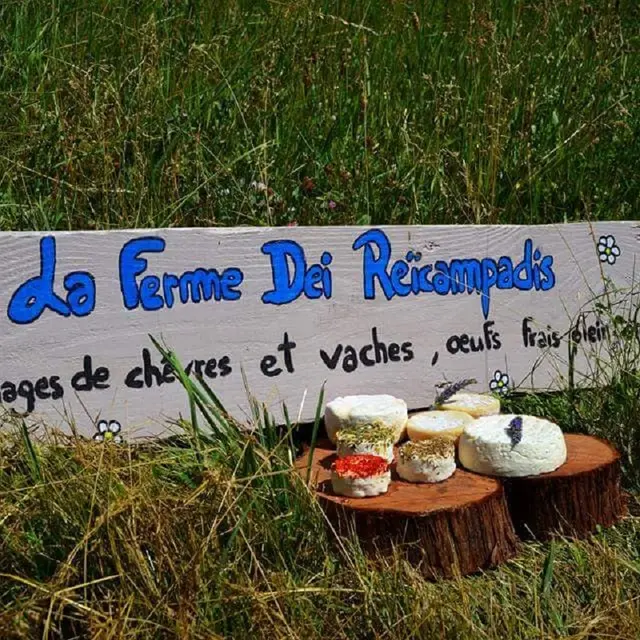 La Ferme Dei Reïcampadis
ages de chèvres et vaches, œufs frais plein